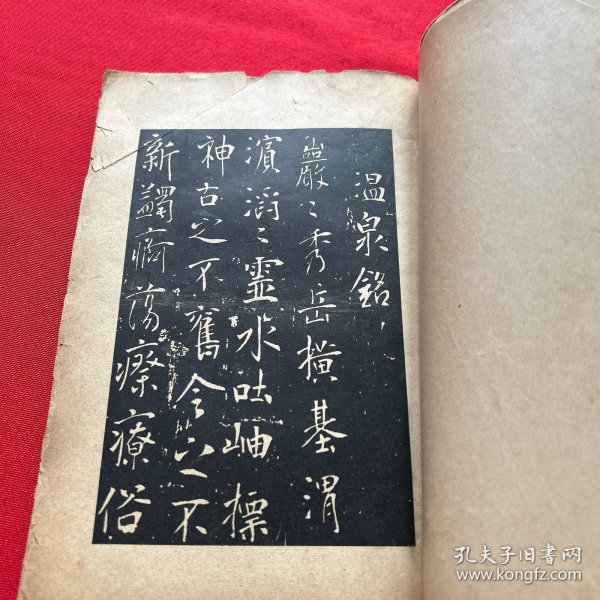 温泉銘
巖〻秀岳橫基渭
濱滔〻靈水吐岫標
神古之不舊今之不
新蠲痾蕩瘵療俗
孔夫子旧书网
www.kongfz.com